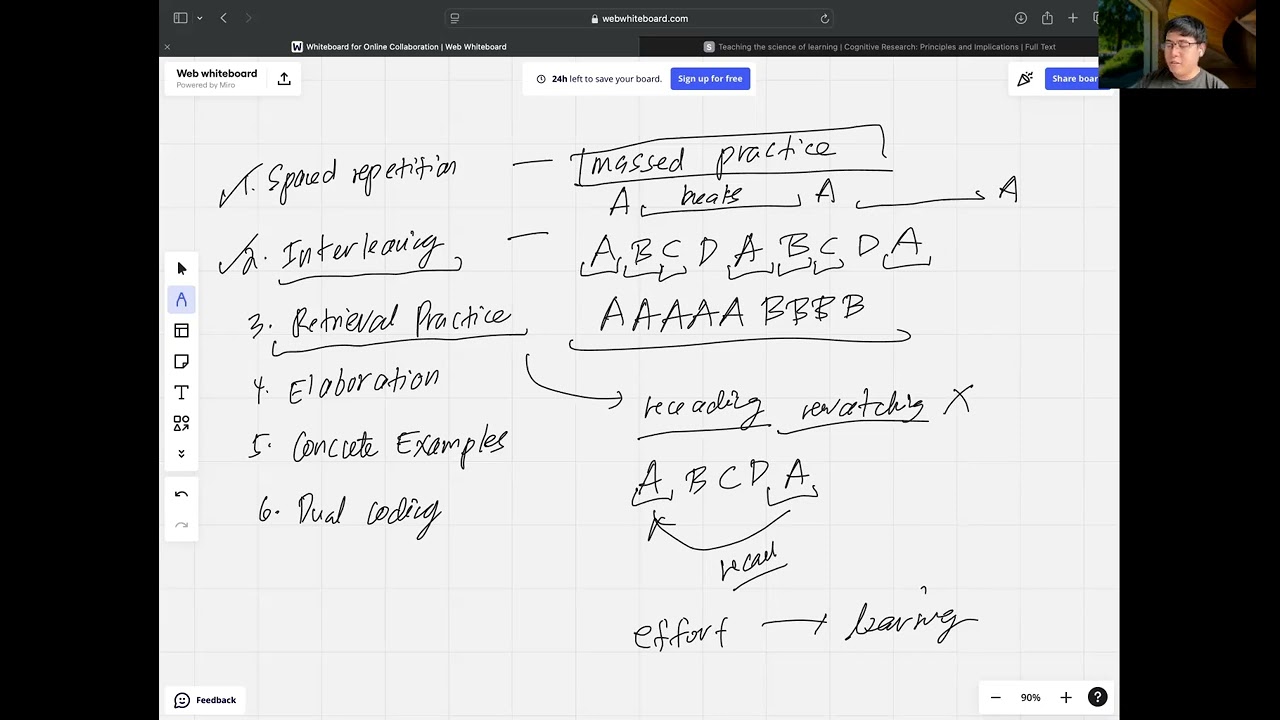 webwhiteboard.com
W Whiteboard for Online Collaboration | Web Whiteboard
S Teaching the science of learning | Cognitive Research: Principles and Implications | Full Text
Web whiteboard
Powered by Miro
24h left to save your board.
Sign up for free
Share boar
1. Spaced repetition — massed practice
A beats A A
2. Interleaving — A B C D A B C D A
3. Retrieval Practice
A A A A A B B B B
4. Elaboration
rereading rewatching X
5. Concrete Examples
A B C D A
6. Dual coding
recall
effort → learning
Feedback
90%
?